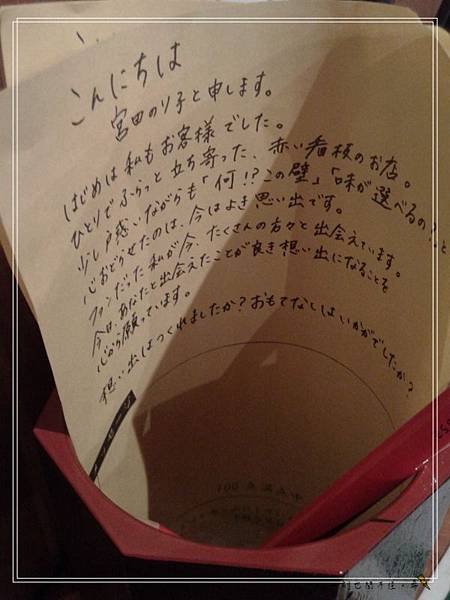 こんにちは
宮田のり子と申します。
はじめは私もお客様でした。
ひとりでふらっと立ち寄った、赤い看板のお店。
少し戸惑いながらも「何!?この壁」「味が選べるの?」と
心おどらせたのは、今はよき思い出です。
ファンだった私が今、たくさんの方々と出会えています。
今日、あなたと出会えたことが良き想い出になることを
心から願っています。
想い出はつくれましたか?おもてなしはいかがでしたか?